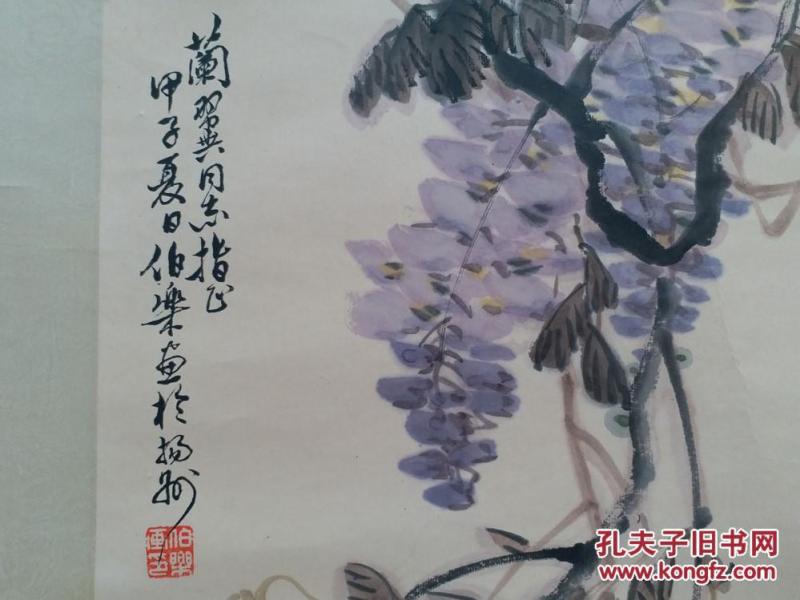 蘭翼同志指正
甲子夏日伯樂画於揚州
伯樂
画印
孔夫子旧书网
www.kongfz.com